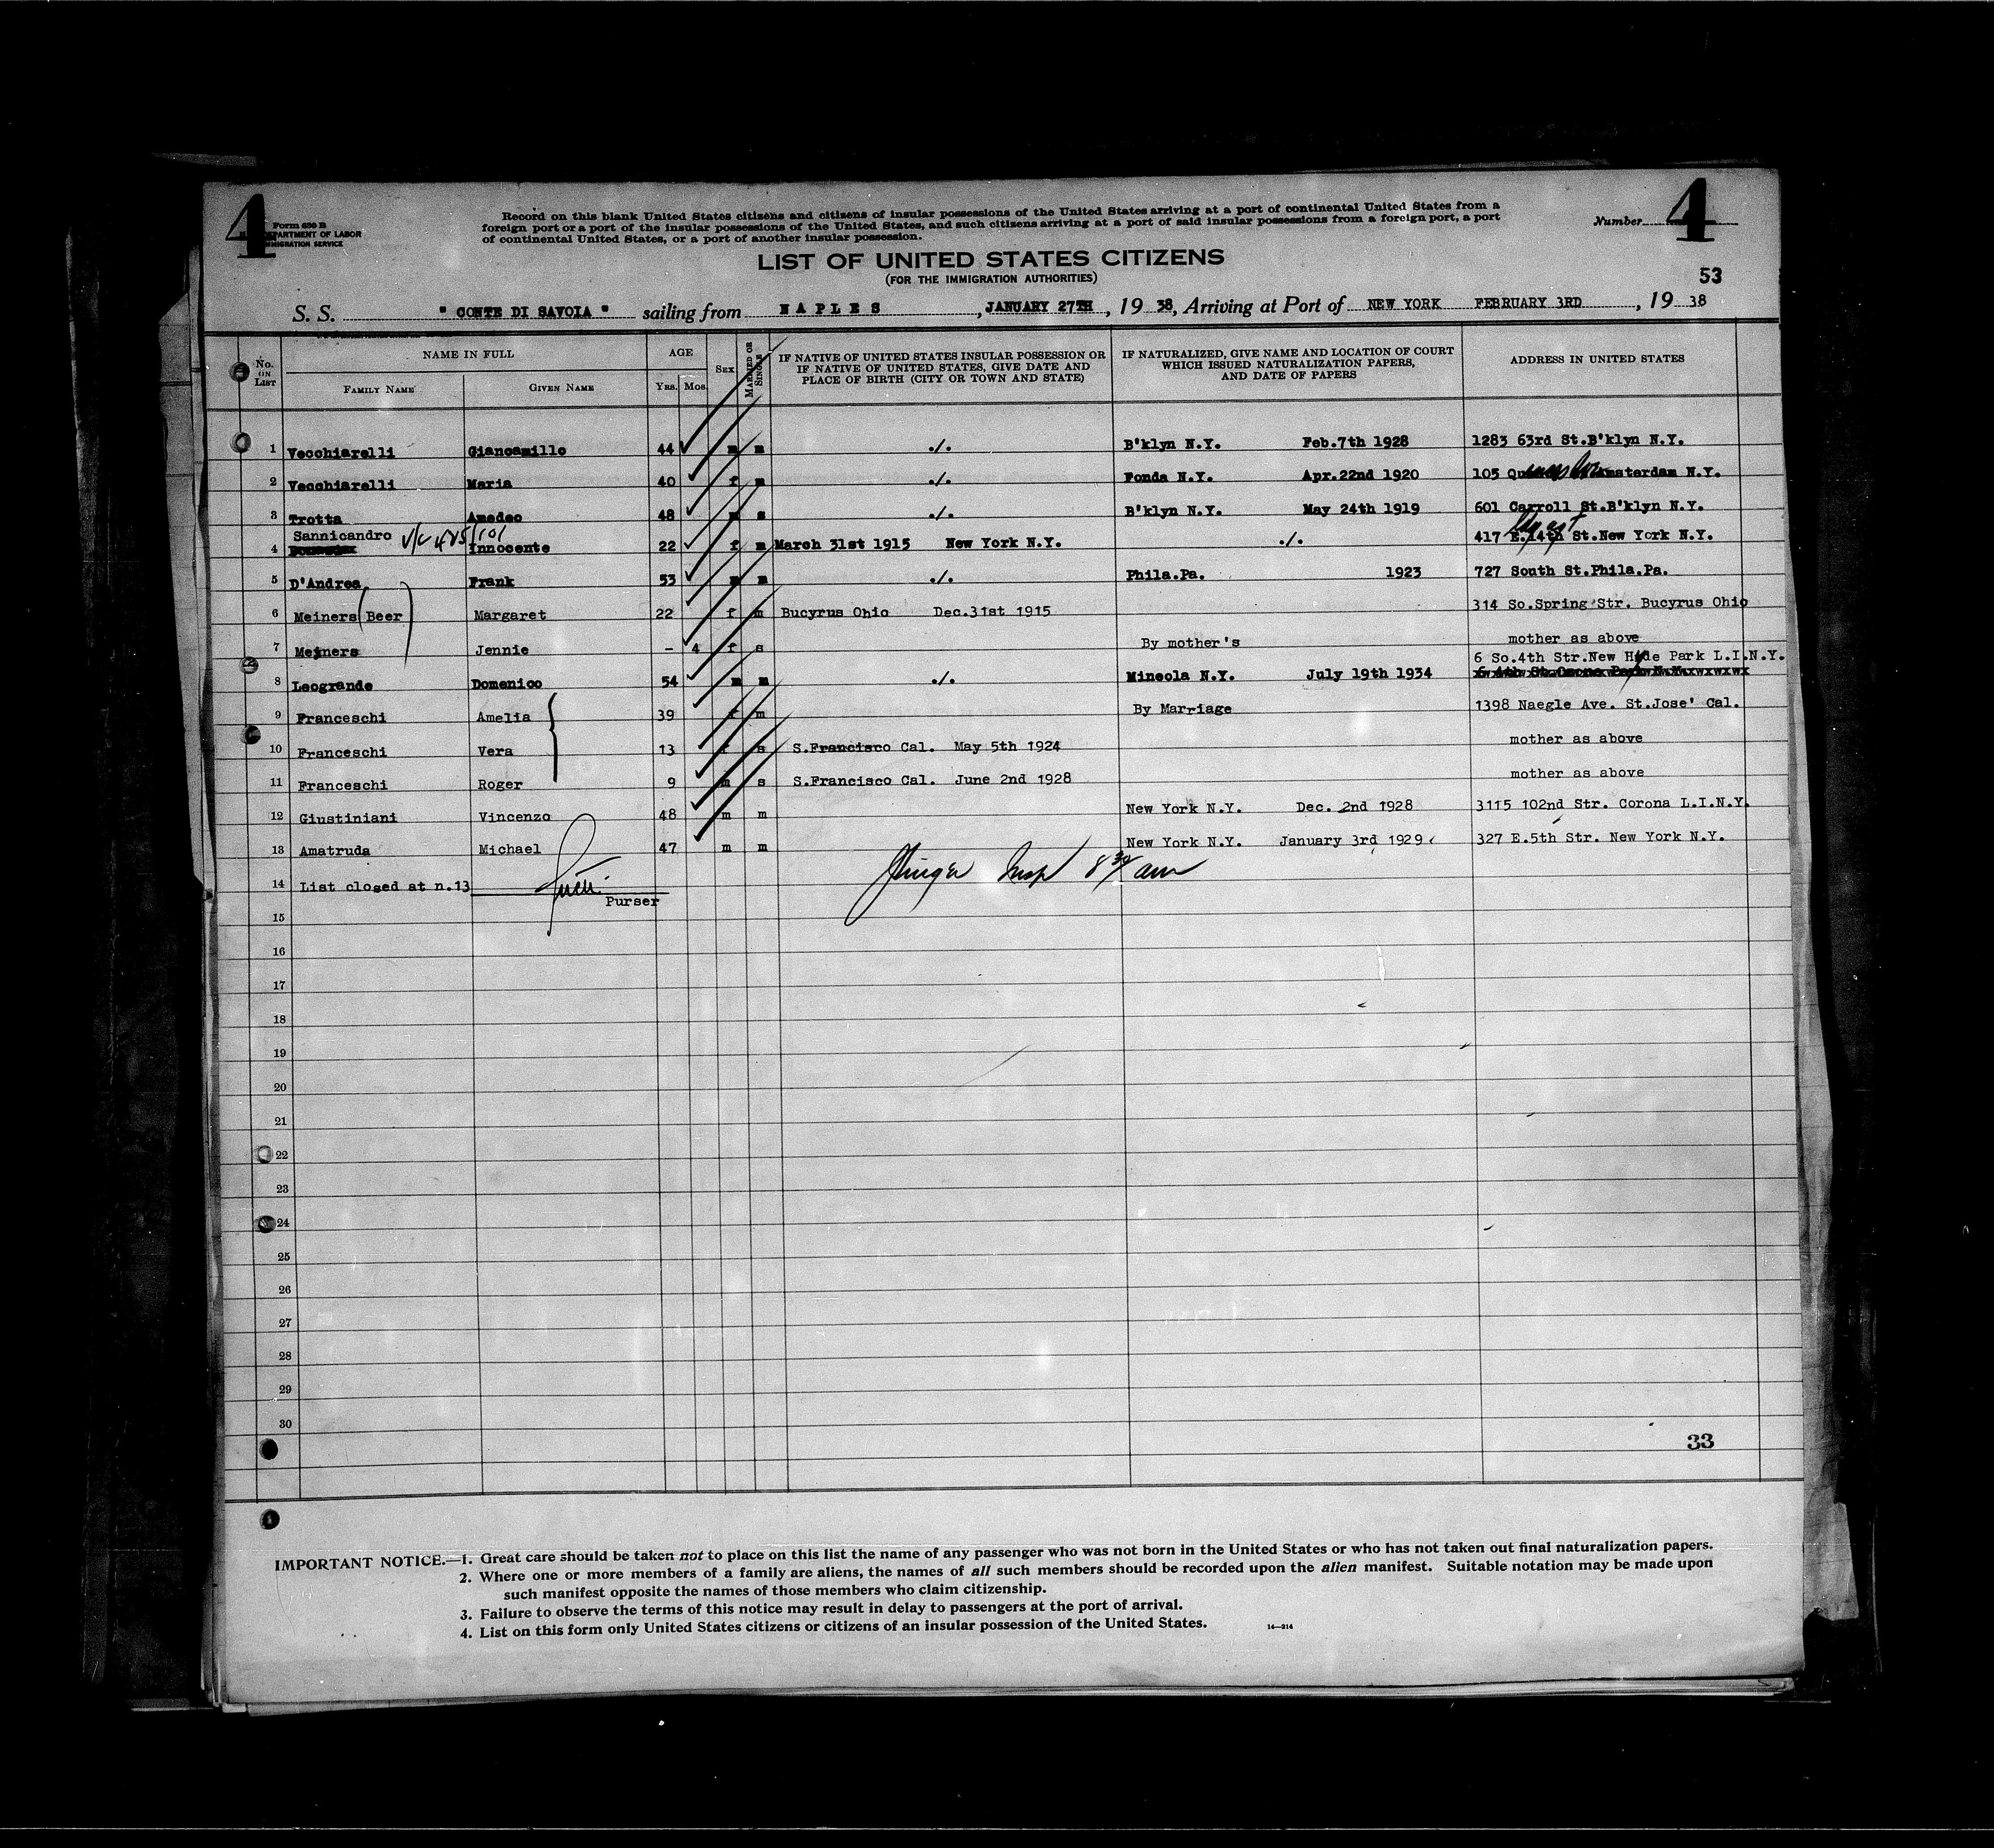 4
Form 630 B
DEPARTMENT OF LABOR
IMMIGRATION SERVICE
Record on this blank United States citizens and citizens of insular possessions of the United States arriving at a port of continental United States from a
foreign port or a port of the insular possessions of the United States, and such citizens arriving at a port of said insular possessions from a foreign port, a port
of continental United States, or a port of another insular possession.
Number 4
LIST OF UNITED STATES CITIZENS
(FOR THE IMMIGRATION AUTHORITIES)
53
S. S. " CONTE DI SAVOIA " sailing from NAPLES, JANUARY 27TH, 19 38, Arriving at Port of NEW YORK FEBRUARY 3RD, 19 38
No. ON LIST
NAME IN FULL
FAMILY NAME GIVEN NAME
AGE
YRS. MOS.
SEX
MARRIED OR SINGLE
IF NATIVE OF UNITED STATES INSULAR POSSESSION OR
IF NATIVE OF UNITED STATES, GIVE DATE AND
PLACE OF BIRTH (CITY OR TOWN AND STATE)
IF NATURALIZED, GIVE NAME AND LOCATION OF COURT
WHICH ISSUED NATURALIZATION PAPERS,
AND DATE OF PAPERS
ADDRESS IN UNITED STATES
1 Vecchiarelli Giancamillo 44 m m ./. B'klyn N.Y. Feb.7th 1928 1283 63rd St.B'klyn N.Y.
2 Vecchiarelli Maria 40 f m ./. Fonda N.Y. Apr.22nd 1920 105 Amsterdam N.Y.
3 Trotta Amedeo 48 m s ./. B'klyn N.Y. May 24th 1919 601 Carroll St.B'klyn N.Y.
Sannicandro
4 Innocente 22 f m March 31st 1915 New York N.Y. ./. 417 E.14th St.New York N.Y.
5 D'Andrea Frank 53 m m ./. Phila.Pa. 1923 727 South St.Phila.Pa.
6 Meiners (Beer) Margaret 22 f m Bucyrus Ohio Dec.31st 1915 314 So.Spring Str. Bucyrus Ohio
7 Meiners Jennie - 4 f s By mother's mother as above
6 So.4th Str.New Hyde Park L.I.N.Y.
8 Leogrande Domenico 54 m m ./. Mineola N.Y. July 19th 1934
9 Franceschi Amelia 39 f m By Marriage 1398 Naegle Ave. St.Jose' Cal.
10 Franceschi Vera 13 f s S.Francisco Cal. May 5th 1924 mother as above
11 Franceschi Roger 9 m s S.Francisco Cal. June 2nd 1928 mother as above
12 Giustiniani Vincenzo 48 m m New York N.Y. Dec. 2nd 1928 3115 102nd Str. Corona L.I.N.Y.
13 Amatruda Michael 47 m m New York N.Y. January 3rd 1929 327 E.5th Str. New York N.Y.
14 List closed at n.13
Purser
Insp 8 30 am
15
16
17
18
19
20
21
22
23
24
25
26
27
28
29
30
33
IMPORTANT NOTICE.—1. Great care should be taken not to place on this list the name of any passenger who was not born in the United States or who has not taken out final naturalization papers.
2. Where one or more members of a family are aliens, the names of all such members should be recorded upon the alien manifest. Suitable notation may be made upon
such manifest opposite the names of those members who claim citizenship.
3. Failure to observe the terms of this notice may result in delay to passengers at the port of arrival.
4. List on this form only United States citizens or citizens of an insular possession of the United States.
14—214